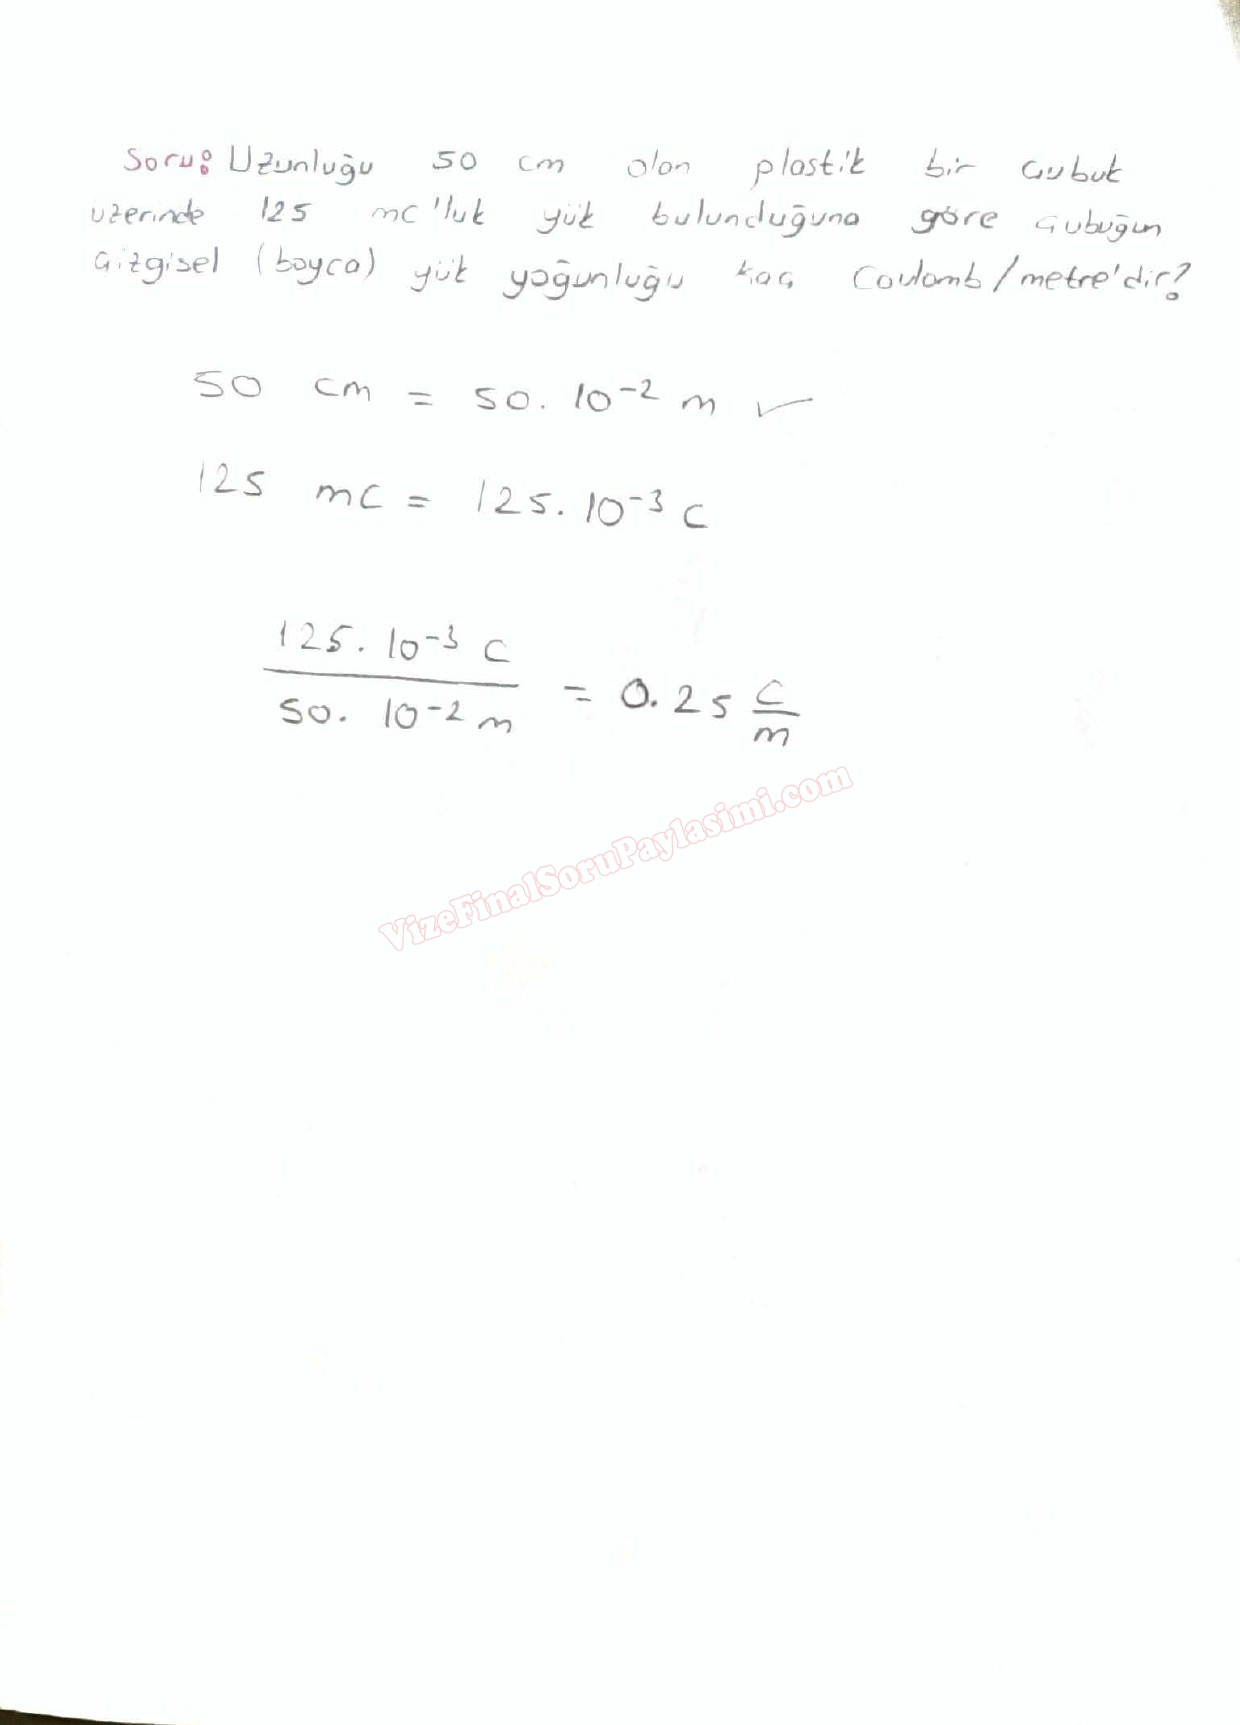 Soru: Uzunluğu 50 cm olan plastik bir çubuk
uzerinde 125 mC'luk yük bulunduğuna göre çubuğun
çizgisel (boyca) yük yoğunluğu kaç Coulomb/metre'dir?
50 cm = 50.10⁻² m ✓
125 mC = 125.10⁻³ C
125.10⁻³ C
50.10⁻² m
= 0.25 C/m
VizeFinalSoruPaylasimi.com